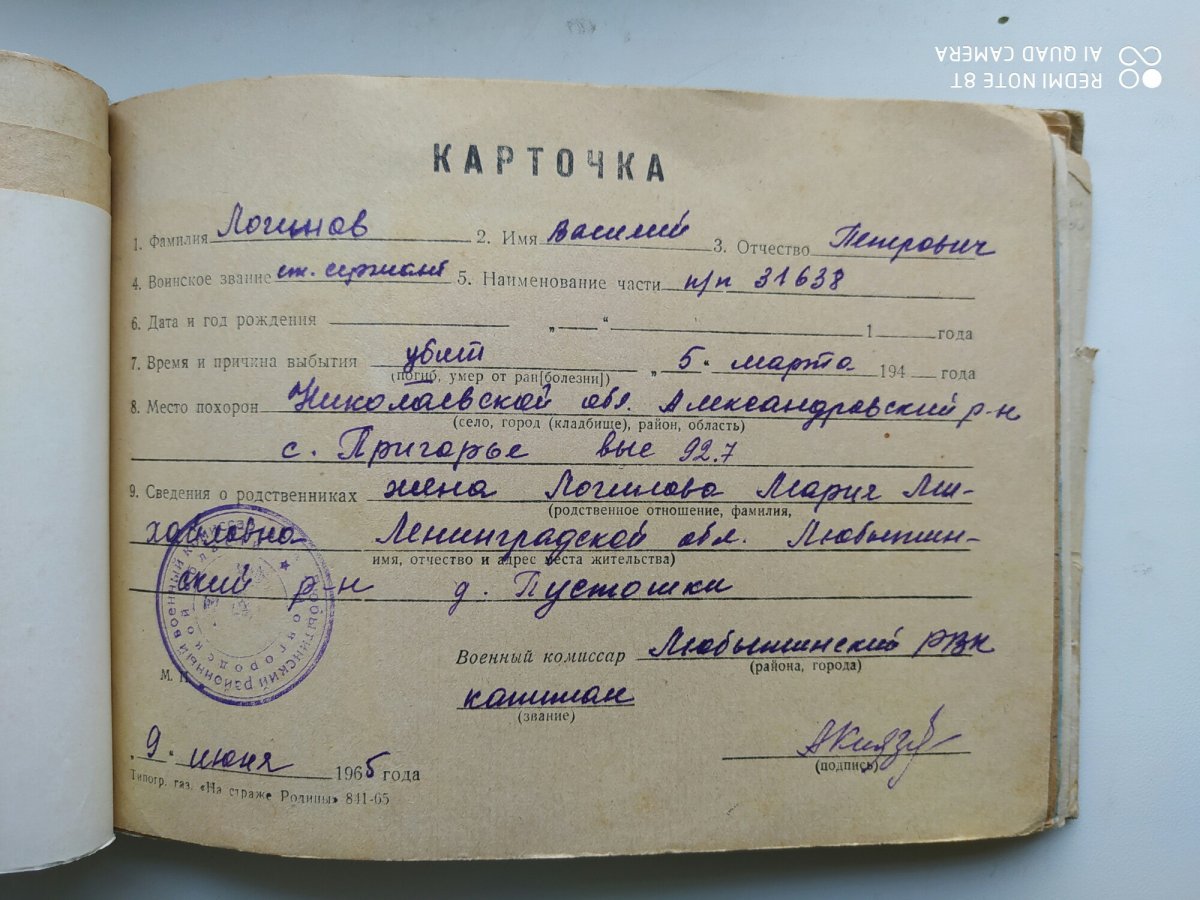 КАРТОЧКА
1. Фамилия Логинов 2. Имя Василий 3. Отчество Петрович
4. Воинское звание ст. сержант 5. Наименование части п/п 31638
6. Дата и год рождения „ — “ 1 года
7. Время и причина выбытия убит „ 5 " марта 194 года
(погиб, умер от ран[болезни])
8. Место похорон Николаевской обл. Александровский р-н
(село, город (кладбище), район, область)
с. Пригорье выс 92.7
9. Сведения о родственниках жена Логинова Мария Ми-
(родственное отношение, фамилия,
хайловна Ленинградской обл. Любытин-
имя, отчество и адрес места жительства)
ский р-н д. Пустошки
Военный комиссар Любытинский РВК
(района, города)
М. П.
капитан
(звание)
„ 9 " июня 1965 года
(подпись)
Типогр. газ. «На страже Родины» 841-65
Любытинский районный военный комиссариат
Новгородской области
REDMI NOTE 8T
AI QUAD CAMERA